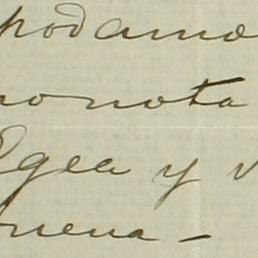 podamo
no nota
Egea y v
uena -